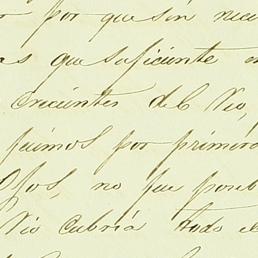 por que sin nece
as que suficiente en
crecientes del Rio,
fuimos por primera
Ojos, no fue posib
Rio cubria todo el